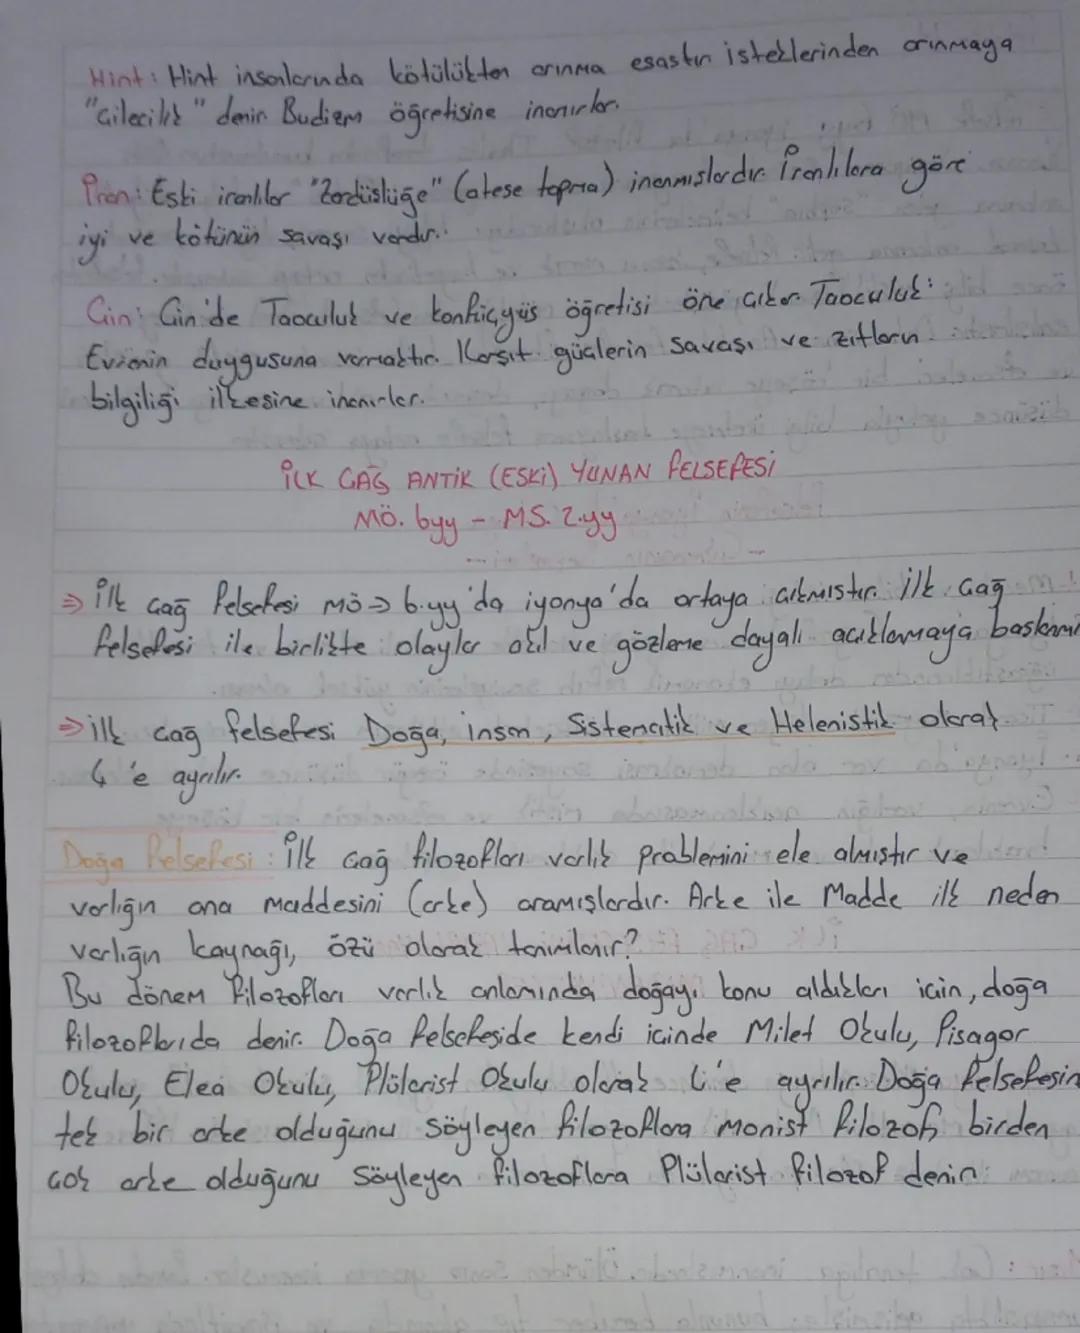 Hint: Hint insanlarında kötülükten arınma esastır isteklerinden arınmaya
"Çilecilik" denir. Budizm öğretisine inanırlar.
İran: Eski iranlılar "Zerdüşlüğe" (ateşe tapma) inanmışlardır. İranlılara göre
iyi ve kötünün savaşı vardır.
Çin: Çin'de Taoculuk ve konfiçyüs öğretisi öne çıkar. Taoculuk:
Evrenin duygusuna varmaktır. Karşıt güçlerin savaşı ve zıtların
bilgiliği ilkesine inanırlar.
İLK ÇAĞ ANTİK (ESKİ) YUNAN FELSEFESİ
MÖ. 6yy - MS. 2.yy
⇒ İlk çağ felsefesi MÖ → 6.yy'da iyonya'da ortaya çıkmıştır. İlk çağ
felsefesi ile birlikte olaylar akıl ve gözleme dayalı açıklamaya başlanmı
⇒ ilk çağ felsefesi Doğa, insan, Sistematik ve Helenistik olarak
4'e ayrılır.
Doğa Felsefesi: İlk çağ filozofları varlık problemini ele almıştır ve
varlığın ana maddesini (arke) aramışlardır. Arke ile Madde ilk neden
varlığın kaynağı, özü olarak tanımlanır?
Bu dönem filozofları varlık anlamında doğayı konu aldıkları için, doğa
filozoflarıda denir. Doğa felsefeside kendi içinde Milet Okulu, Pisagor
Okulu, Elea Okulu, Plülarist Okulu olarak 4'e ayrılır. Doğa felsefesin
tek bir arke olduğunu söyleyen filozoflara monist filozof, birden
çok arke olduğunu söyleyen filozoflara Plülarist filozof denir.